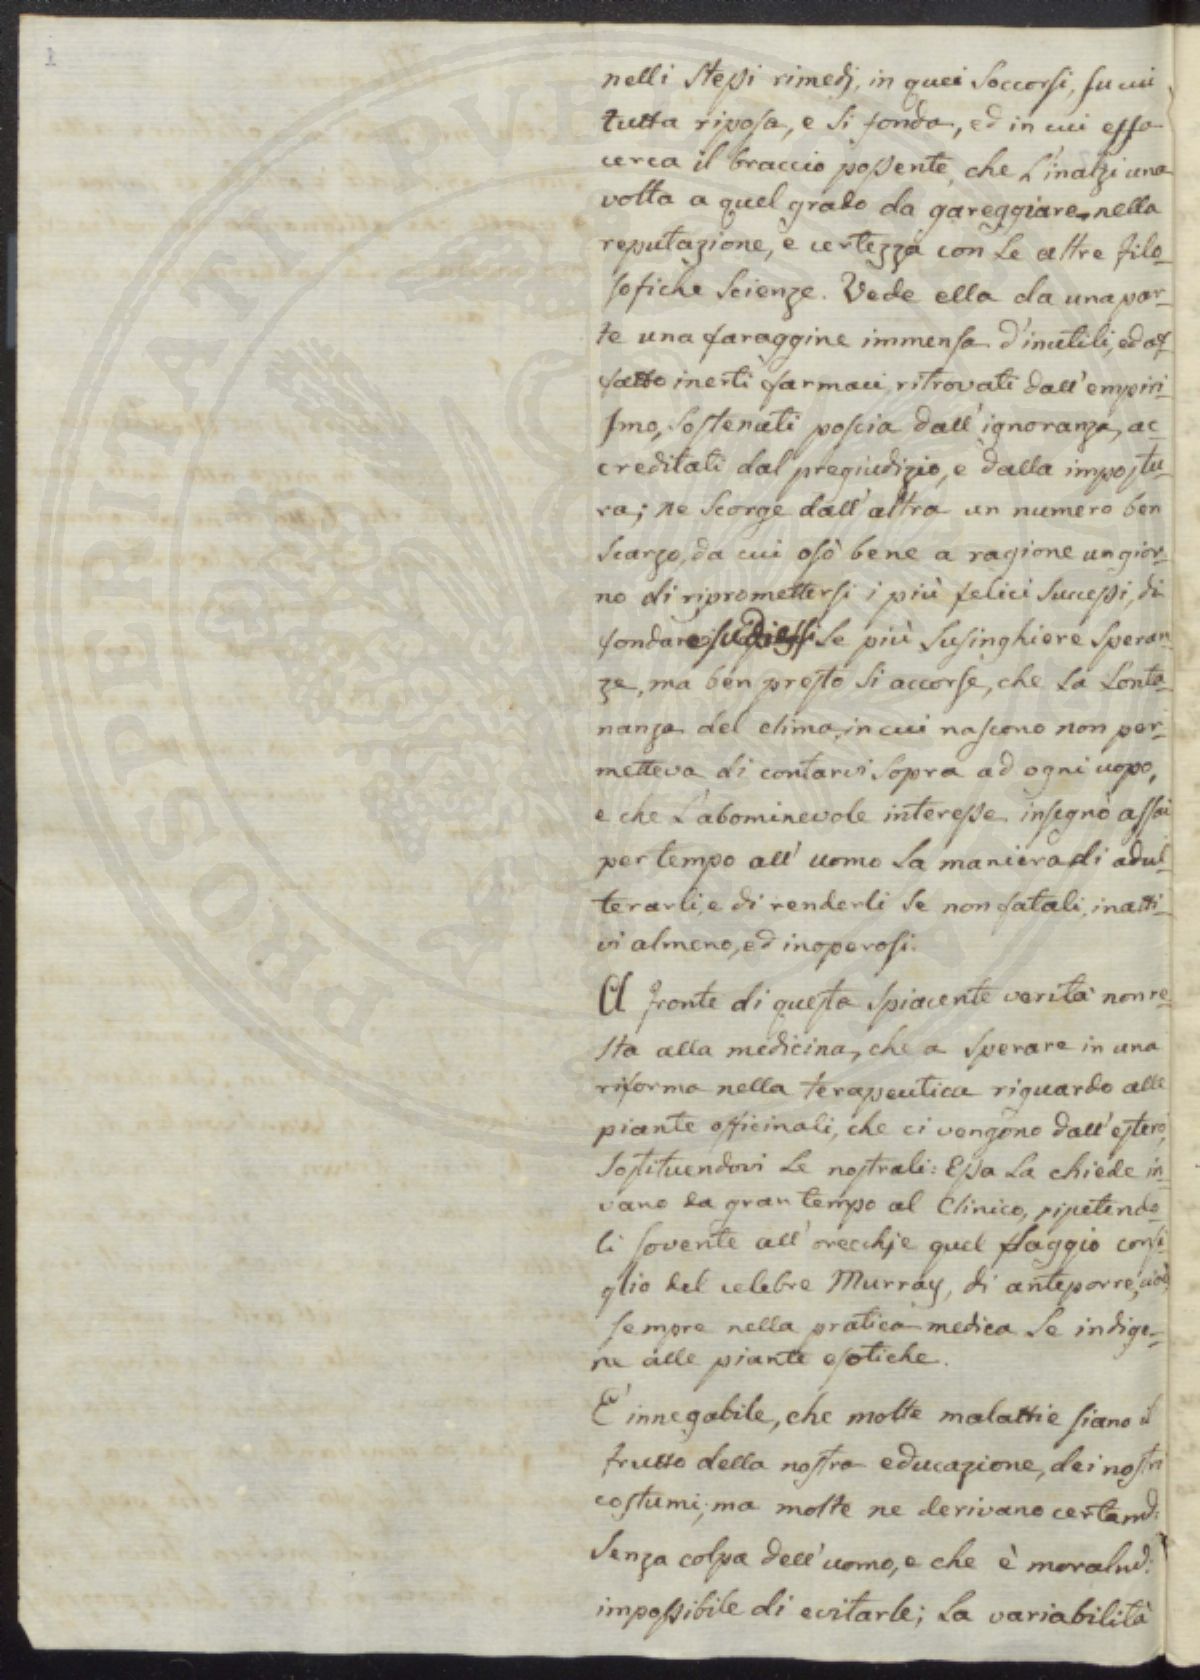 1
nelli stessi rimedj, in quei soccorsi, su cui
tutta riposa, e si fonda, ed in cui essa
cerca il braccio possente, che l'inalzi una
volta a quel grado da gareggiare nella
reputazione, e certezza con le altre filo-
sofiche scienze. Vede ella da una par-
te una faraggine immensa d'inutili, ed af-
fatto inerti farmaci, ritrovati dall'empiri-
smo, sostenuti poscia dall'ignoranza, ac-
creditati dal pregiudizio, e dalla impostu-
ra; ne scorge dall'altra un numero ben
scarzo, da cui osò bene a ragione un gior-
no di ripromettersi i più felici successi, di
fondare su di essi le più lusinghiere speran-
ze, ma ben presto si accorse, che la lonta-
nanza del clima, in cui nascono non per-
metteva di contarvi sopra ad ogni uopo,
e che l'abominevole interesse insegnò assai
per tempo all'uomo la maniera di adul-
terarli, e di renderli se non fatali, inatti-
vi almeno, ed inoperosi.
A fronte di questa spiacente verità non re-
sta alla medicina, che a sperare in una
riforma nella terapeutica riguardo alle
piante officinali, che ci vengono dall'estero,
sostituendovi le nostrali: Essa la chiede in-
vano da gran tempo al Clinico, ripetendo-
li sovente all'orecchie quel saggio consi-
glio del celebre Murray, di anteporre, cioè,
sempre nella pratica medica le indige-
ne alle piante esotiche.
E' innegabile, che molte malattie siano il
frutto della nostra educazione, dei nostri
costumi; ma molte ne derivano certamᵉ:
senza colpa dell'uomo, e che è moralmᵉ:
impossibile di evitarle; la variabilità
PROSPERITATI PVBLICAE